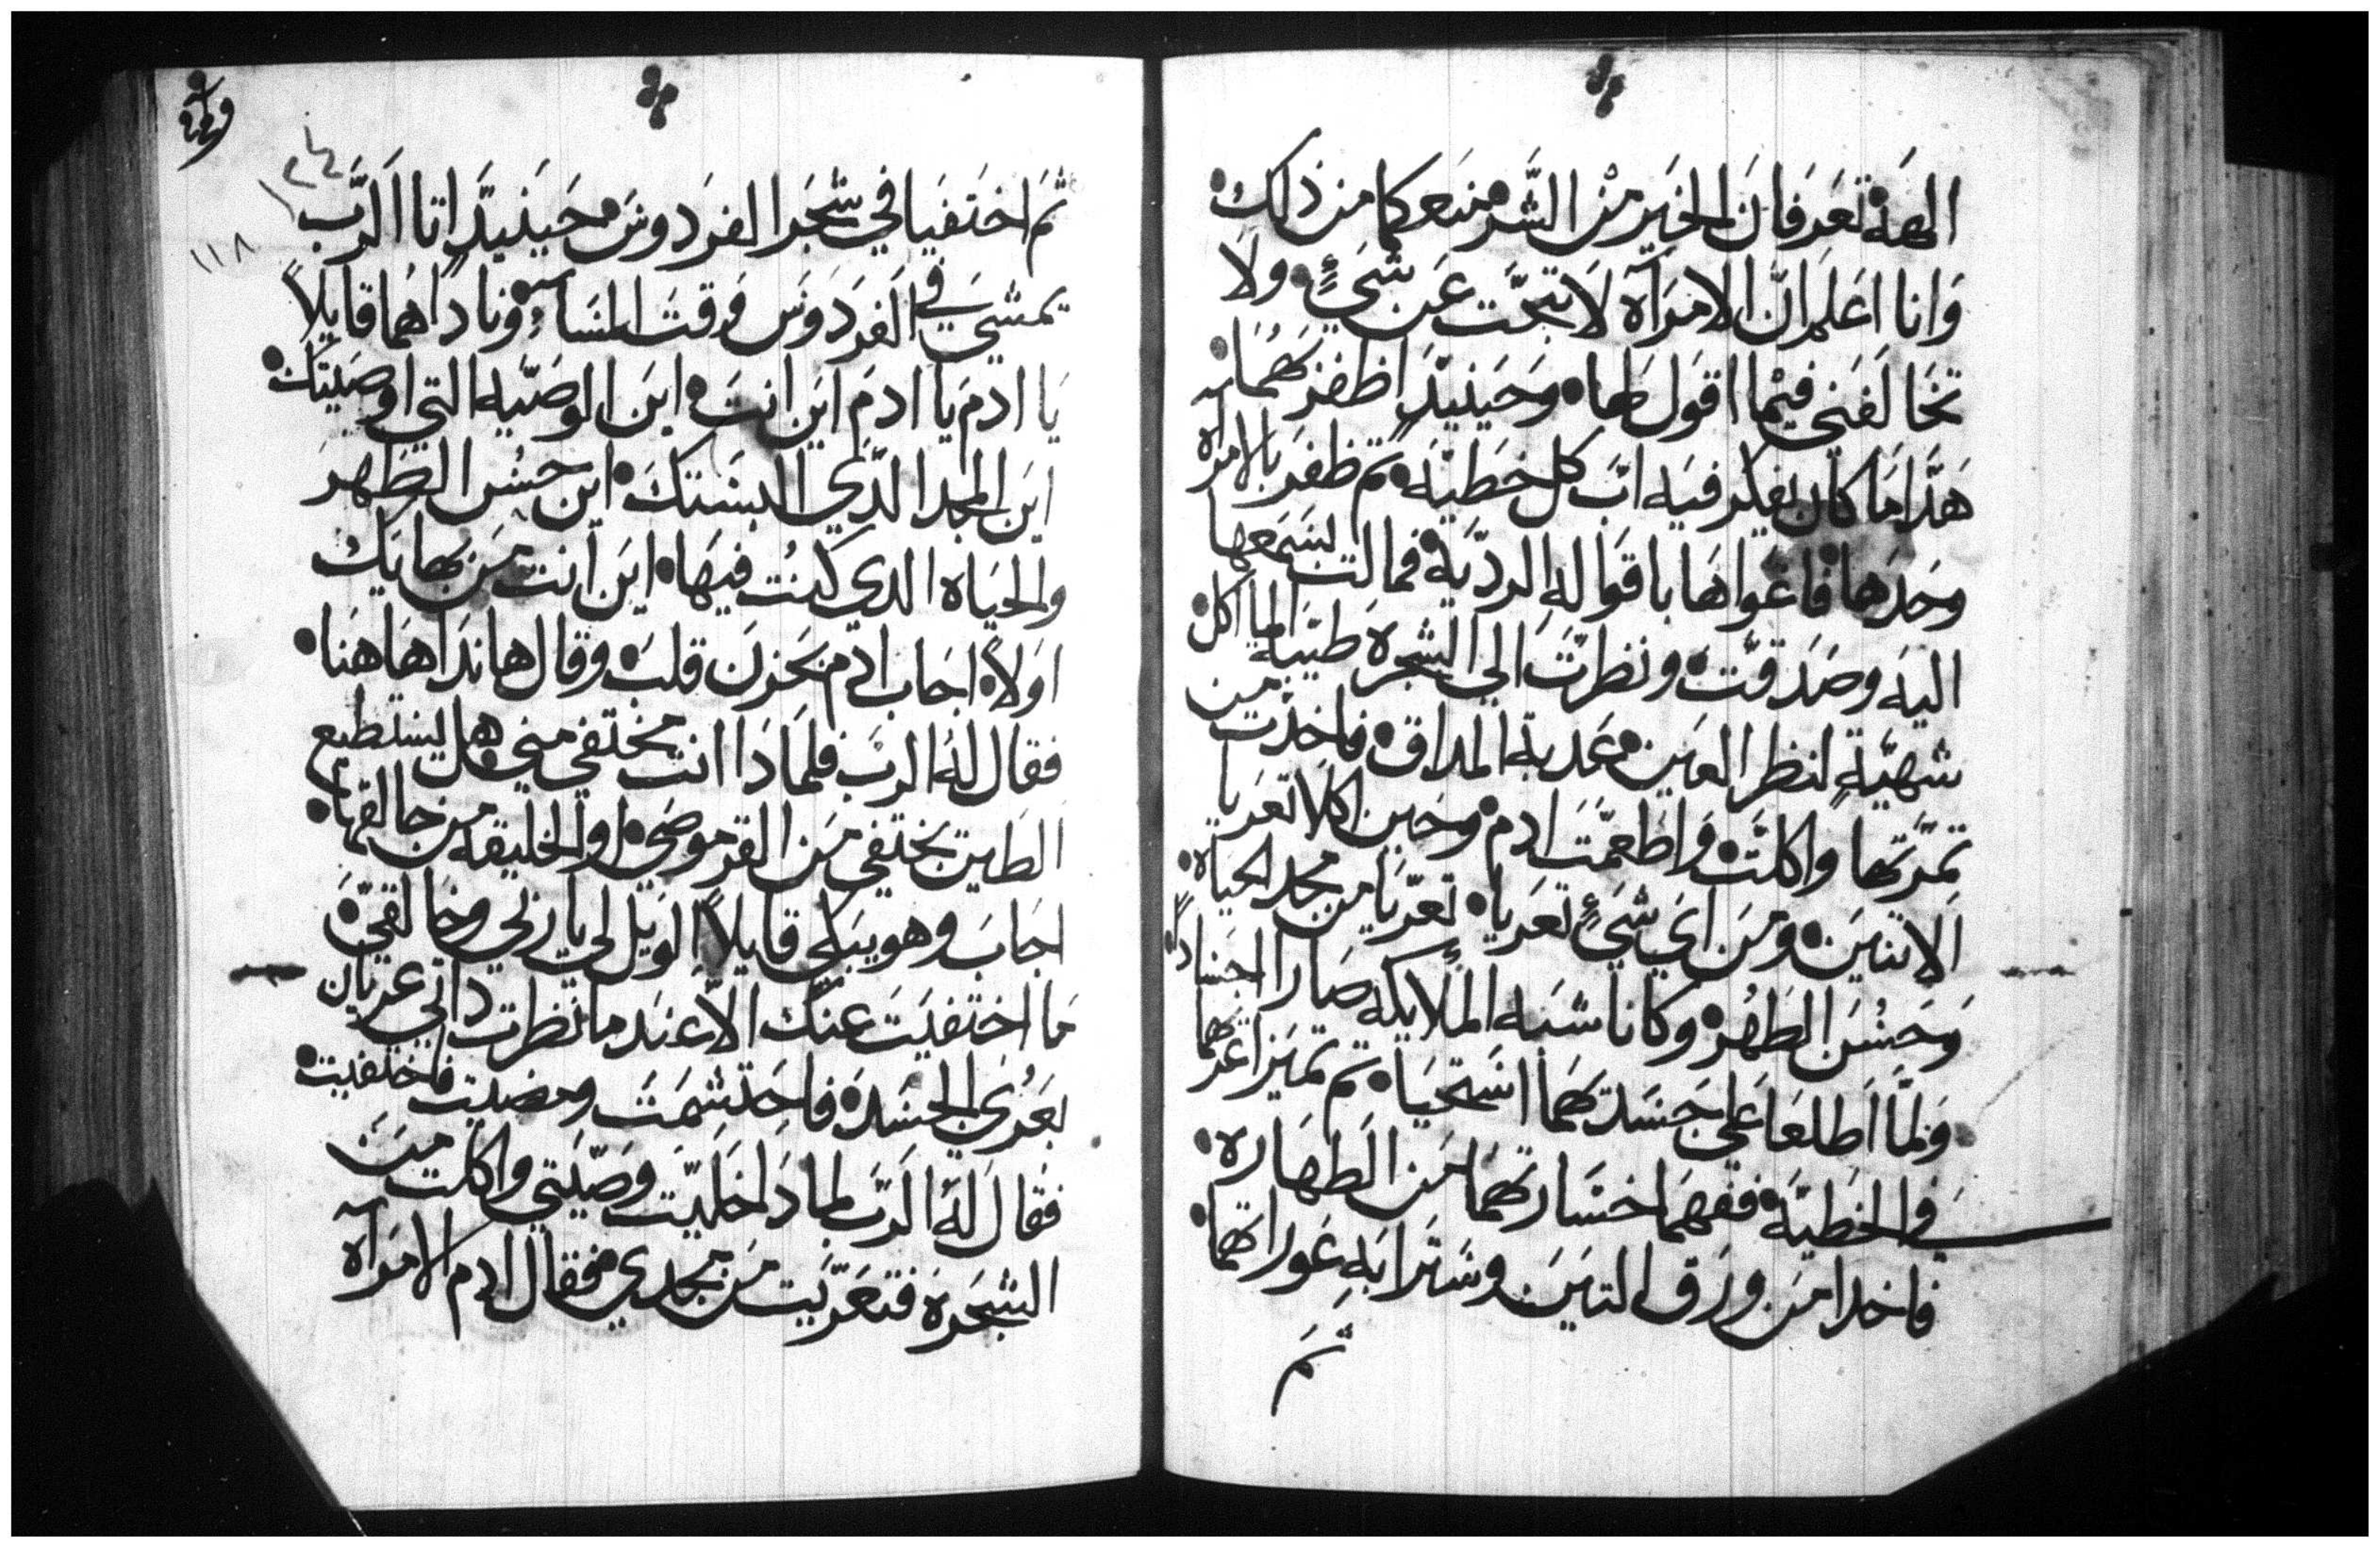 الهة تعرفان الخير من الشر منعكما من ذلك
وانا اعلم ان الامرآه لا تبحت عن شيءٍ ولا
تخالفني فيما اقول لها وحينيدٍ اظفر بهما
هدا ما كان يفكر فيه اب كل خطية تم ظفر بالامرآه
وحدها فاغواها باقواله الرديّة فمالت بسمعها
اليه وصدقت ونظرت الي الشجره طيبة المآكل
شهيّةٍ لنظر العين عدبة المداق فاخدت من
تمرتها واكلت واطعمت ادم وحين اكلا تعريا
الاتنين ومن اي شيءٍ تعريا تعرّيا من مجد الحياه
وحسن الطهر وكانا شبه الملايكه صارا اجسادًا
ولمّا اطلعا علي جسدتهما استحيا تم تميزا عريهما
في الخطيّة ففهما خسارتهما من الطهاره
فاخدا من ورق التين وسترا به عوراتهما
ثم
١١٨
ثم اختفيا في شجر الفردوس حينيدٍ اتا الرّب
يمشي في الفردوس وقت المساء وناداهما قايلاً
يا ادم يا ادم اين انت اين الوصّيه التي اوصيتك
اين المجد الدي البستك اين حسن الطهر
والحياه الدي كنت فيها اين انت من بهايك
اولاً اجاب ادم بحزن قلب وقال هاندا هاهنا
فقال له الرب فلمادا انت مختفي مني هل يستطيع
الطين يختفي من القرموصي او الخليقه من خالقها
اجاب وهو يبكي قايلاً الويل لي يا ربي وخالقي
ما اختفيت عنك الاّ عندما نظرت داتي عريان
بعري الجسد فاحتشمت ومضيت فاختفيت
فقال له الرّب لمادا خليّت وصّيتي واكلت من
الشجرة فتعرّيت من مجدي فقال ادم الامرآه